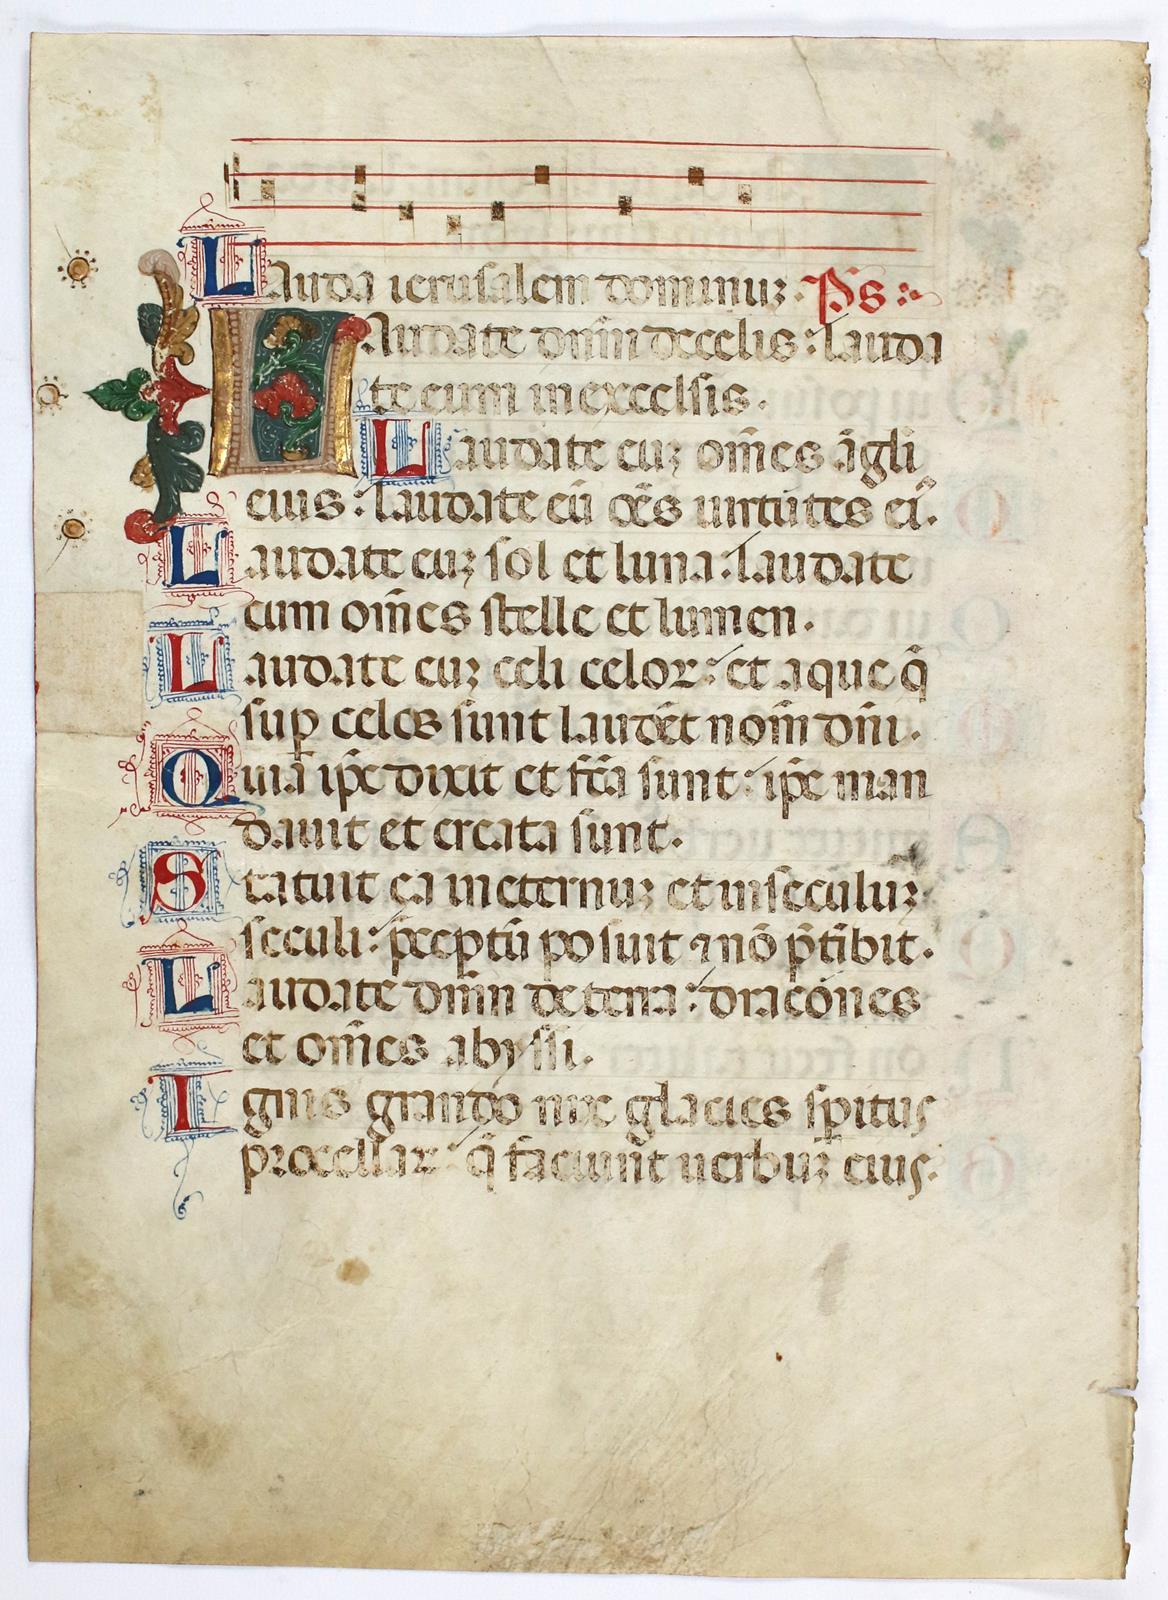 Lauda ierusalem dominuꝫ. Ps
Laudate dn̄m de celis : lauda
te eum in excelsis.
Laudate euꝫ om̄es āgli
eius : laudate eū oēs uirtutes ei᾽.
Laudate euꝫ sol et luna : laudate
eum om̄es stelle et lumen.
Laudate euꝫ celi celoꝝ : et aque q̄
suꝑ celos sunt laudēt nom̄ dn̄i.
Quia ip̄e dixit et fc̄a sunt : ip̄e man
dauit et creata sunt.
Statuit ea in eternuꝫ et in seculuꝫ
seculi : p̄ceptū posuit ⁊ nō p̄t̄ibit.
Laudate dn̄m de terra : dracones
et om̄es abyssi.
Ignis grando nix glacies sp̄itus
procellaꝝ : q̄ faciunt uerbuꝫ eius.